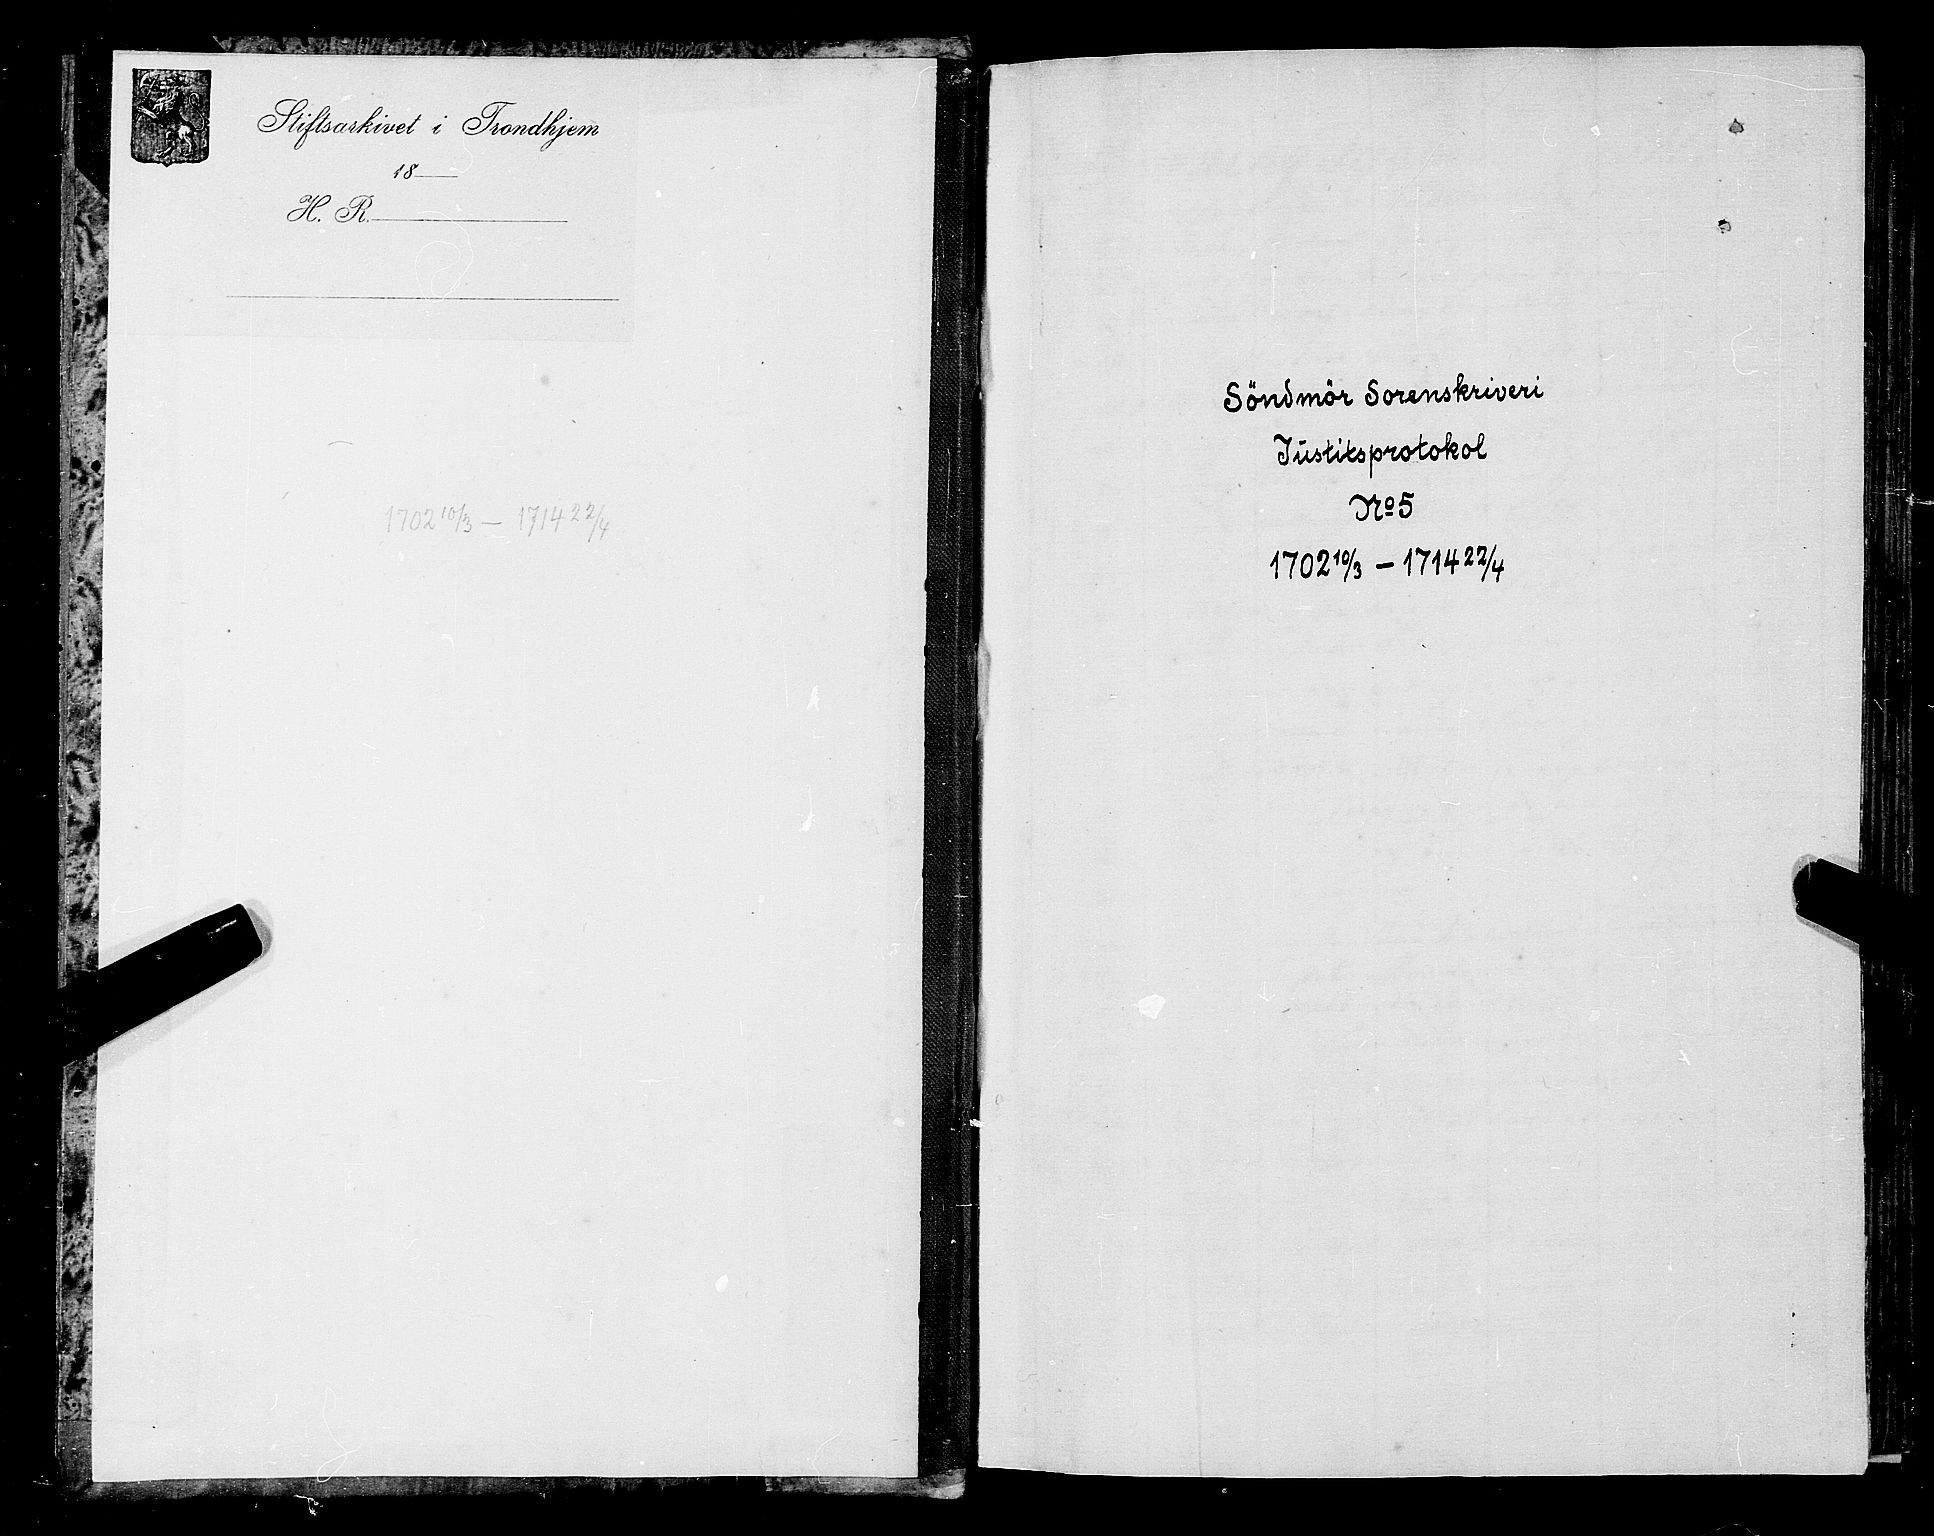 Stiftsarkivet i Trondhjem
18
H. R.
1702 10/3 — 1714 22/4
Söndmör Sorenskriveri
Justitsprotokol
No 5
1702 10/3 — 1714 22/4